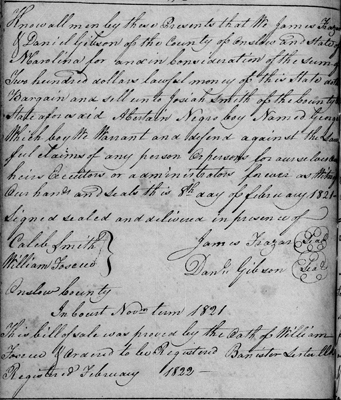 Know all men by these Presents that We James Frazar
& Daniel Gibson of the County of Onslow and State of
N Carolina for and in consideration of the sum of
Two hundred dollars lawful money of this State do
Bargain and sell unto Josiah Smith of the County &
State aforesaid A Certain Negro boy Named George
Which boy We Warrant and defend against the Law
ful claims of any person or persons for ourselves
heirs Executors or administrators forever as Witness
Our hands and seals this 8th day of February 1821
Signed sealed and delivered in presence of
Caleb Smith James Frazar Seal
William Danl Gibson Seal
Onslow County
In Court Novr term 1821
This bill of sale was proved by the Oath of William
& Ordered to be Registered Banister Lester Clk
Registered February 1822